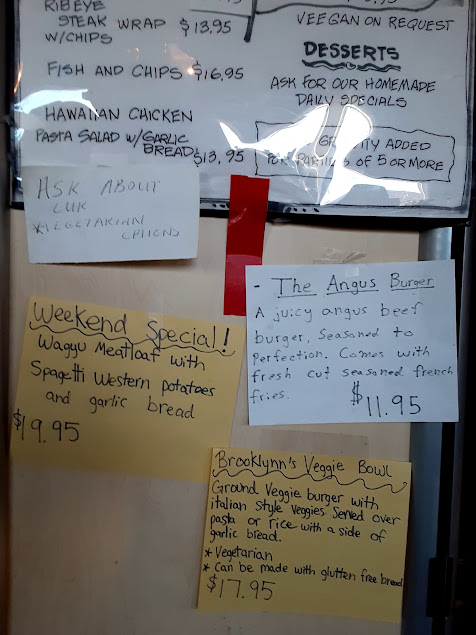 RIBEYE
STEAK WRAP $13.95
W/CHIPS
FISH AND CHIPS $16.95
HAWAIIAN CHICKEN
PASTA SALAD W/GARLIC
BREAD $13.95
VEEGAN ON REQUEST
DESSERTS
ASK FOR OUR HOMEMADE
DAILY SPECIALS
ADDED
OF 5 OR MORE
ASK ABOUT
OUR
*VEGETARIAN
OPTIONS
- The Angus Burger
A juicy angus beef
burger, Seasoned to
Perfection. Comes with
fresh cut seasoned french
fries. $11.95
Weekend Special!
Waggu Meatloaf with
Spagetti Western potatoes
and garlic bread
$19.95
Brooklynn's Veggie Bowl
Ground Veggie burger with
italian style veggies Served over
pasta or rice with a side of
garlic bread.
* Vegetarian
* Can be made with glutten free bread
$17.95